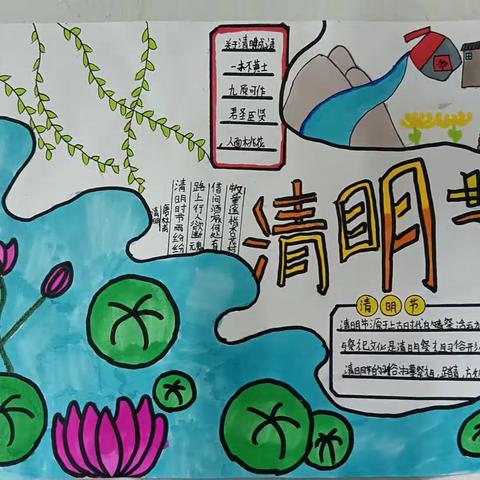 关于清明成语
一抔黄土
九原可作
君圣臣贤
人面桃花
清明
唐 杜牧
清明时节雨纷纷
路上行人欲断魂
借问酒家何处有
牧童遥指杏花村
清明
清明节
清明节源于上古时代
与祭祀文化是清明祭祖习俗形
清明节的习俗扫墓祭祖,踏青,